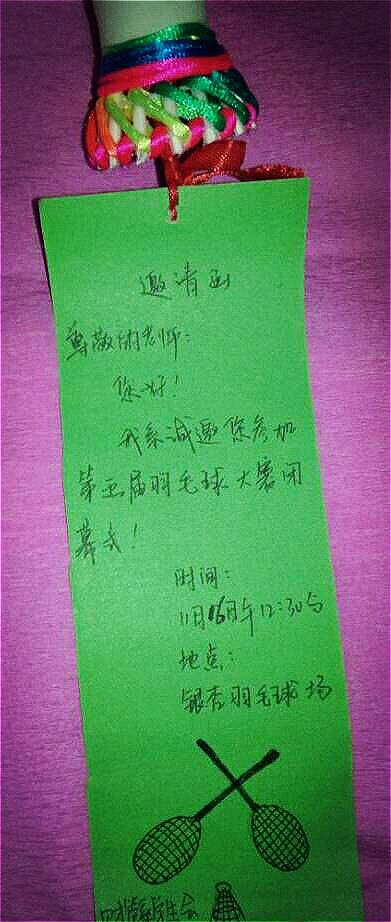 邀请函
尊敬的老师:
您好!
我系诚邀您参加
第五届羽毛球大赛闭
幕式!
时间:
11月16日午12:30分
地点:
银杏羽毛球场
学生会